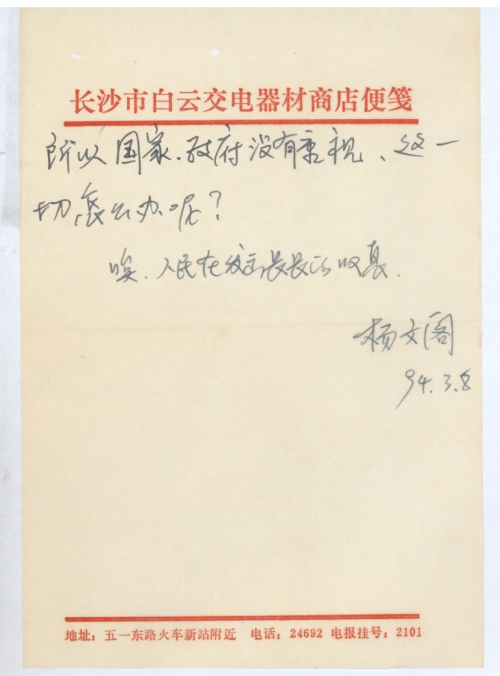 长沙市白云交电器材商店便笺
所以国家、政府没有重视、这一
切怎么办呢？
唉、人民在发出长长的叹息.
杨文阁
94.3.8
地址：五一东路火车新站附近 电话：24692 电报挂号：2101